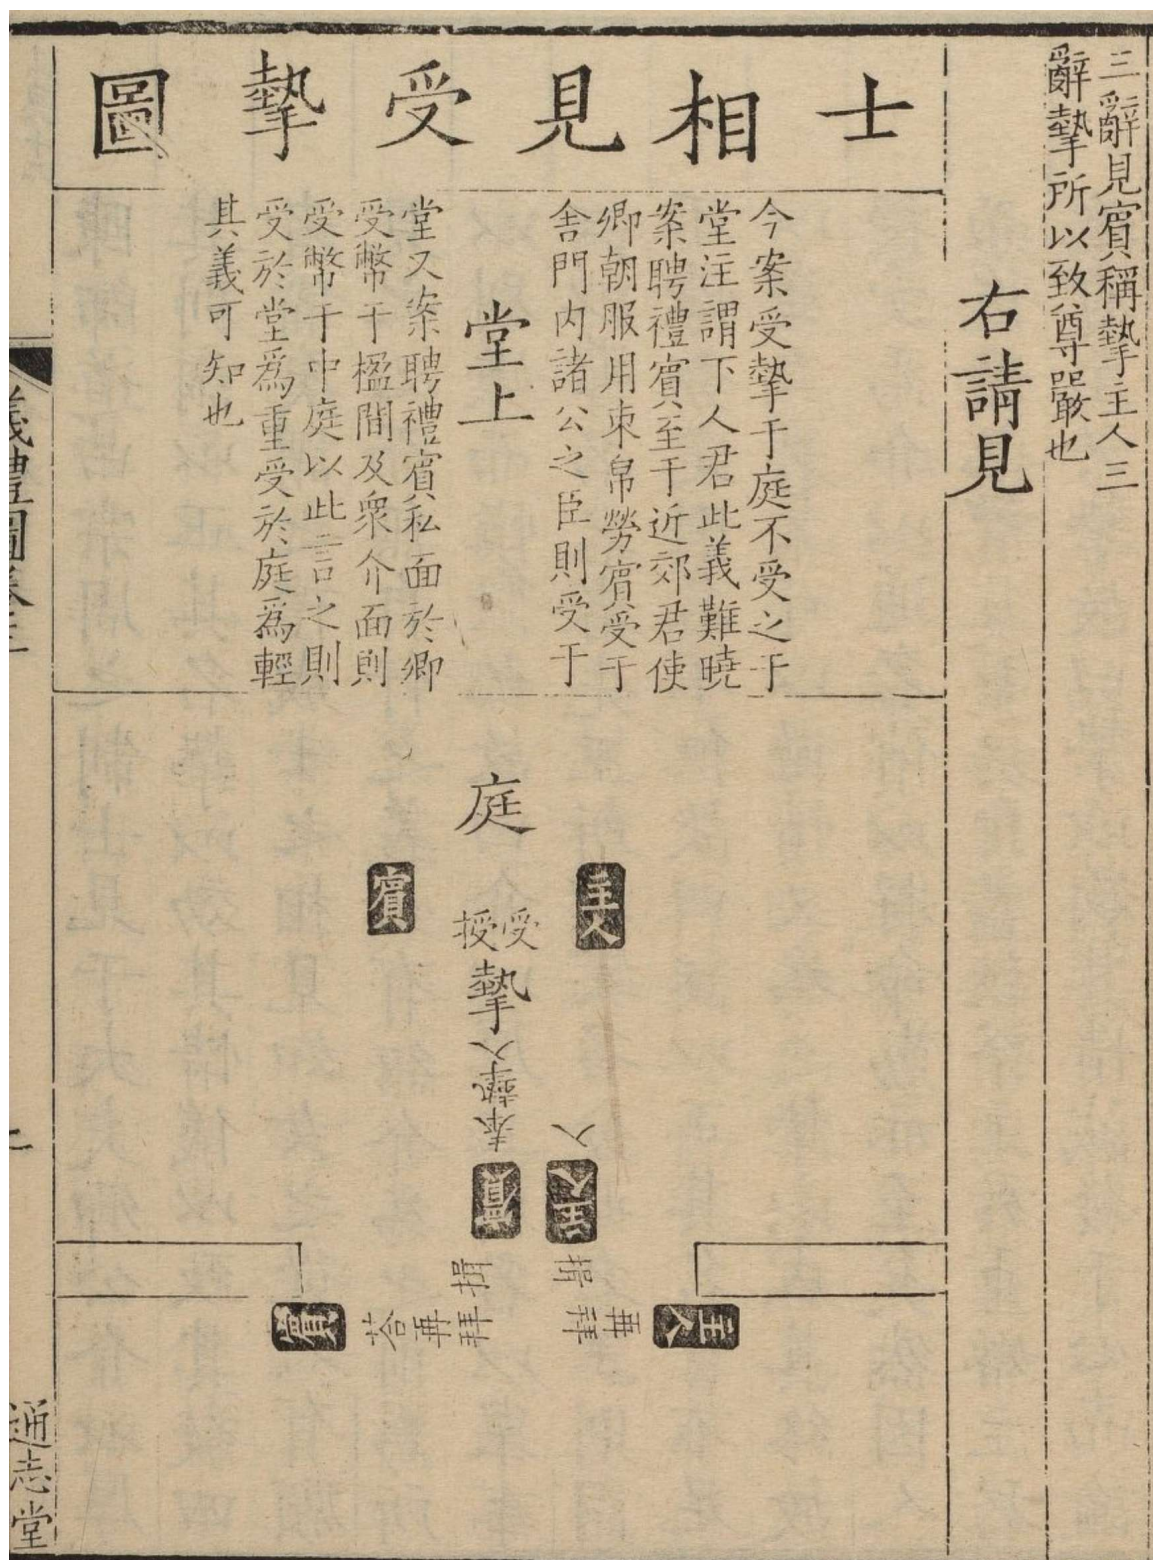 三辭見賓稱摯主人三
辭摯所以致尊嚴也
右請見
士相見受摯圖
今案受摯于庭不受之于
堂注謂下人君此義難曉
案聘禮賓至于近郊君使
卿朝服用束帛勞賓受于
舍門內諸公之臣則受于
堂上
堂又案聘禮賓私面於卿
受幣于楹間及衆介面則
受幣于中庭以此言之則
受於堂爲重受於庭爲輕
其義可知也
庭
主人
賓
受
授
摯
入
奉摯入
主人
賓
揖
揖
主人
再
拜
拜
再
荅
賓
儀禮圖卷三
通志堂